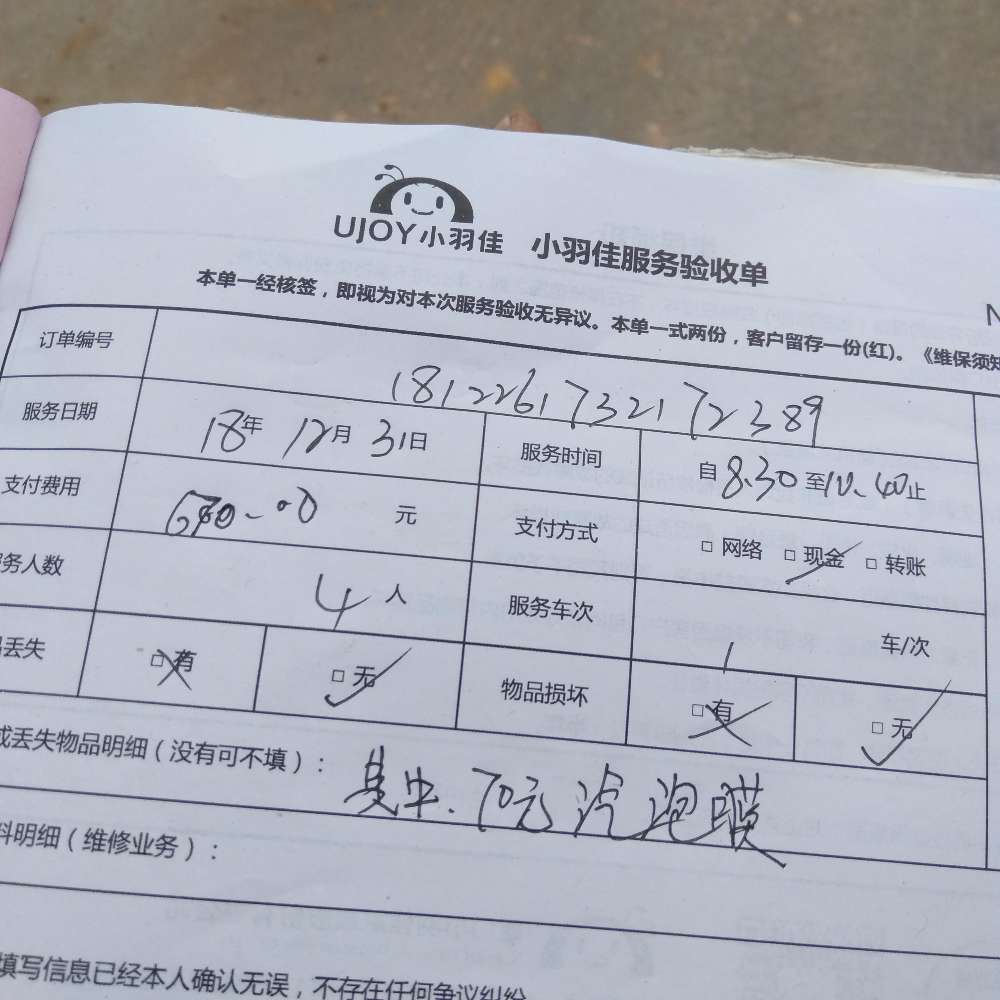 UJOY小羽佳 小羽佳服务验收单
本单一经核签，即视为对本次服务验收无异议。本单一式两份，客户留存一份(红)。《维保须知
N
订单编号 1812261732172389
服务日期 18年 12月 31日 服务时间 自8.30至10.40止
支付费用 元 支付方式 □ 网络 □ 现金 □ 转账
务人数 4人 服务车次 1 车/次
丢失 □ 有 □ 无 物品损坏 □ 有 □ 无
或丢失物品明细（没有可不填）： 其中.70元汽泡膜
料明细（维修业务）：
填写信息已经本人确认无误，不存在任何争议纠纷